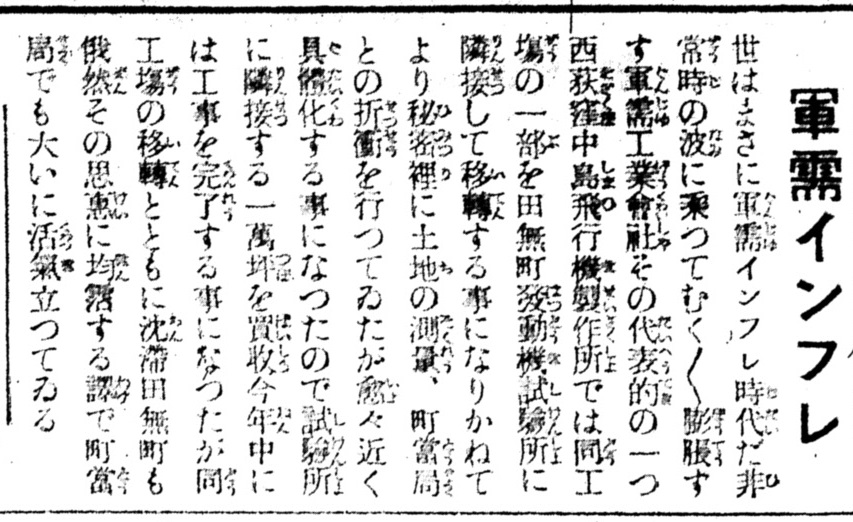 軍需インフレ
世はまさに軍需インフレ時代だ非
常時の波に乘つてむく〱膨脹す
す軍需工業會社その代表的の一つ
西荻窪中島飛行機製作所では同工
塲の一部を田無町發動機試驗所に
隣接して移轉する事になりかねて
より秘密裡に土地の測量、町當局
との折衝を行つてゐたが愈々近く
具體化する事になつたので試驗所
に隣接する一萬坪を買收今年中に
は工事を完了する事になつたが同
工塲の移轉とともに沈滯田無町も
俄然その思惠に均霑する譯で町當
局でも大いに活氣立つてゐる